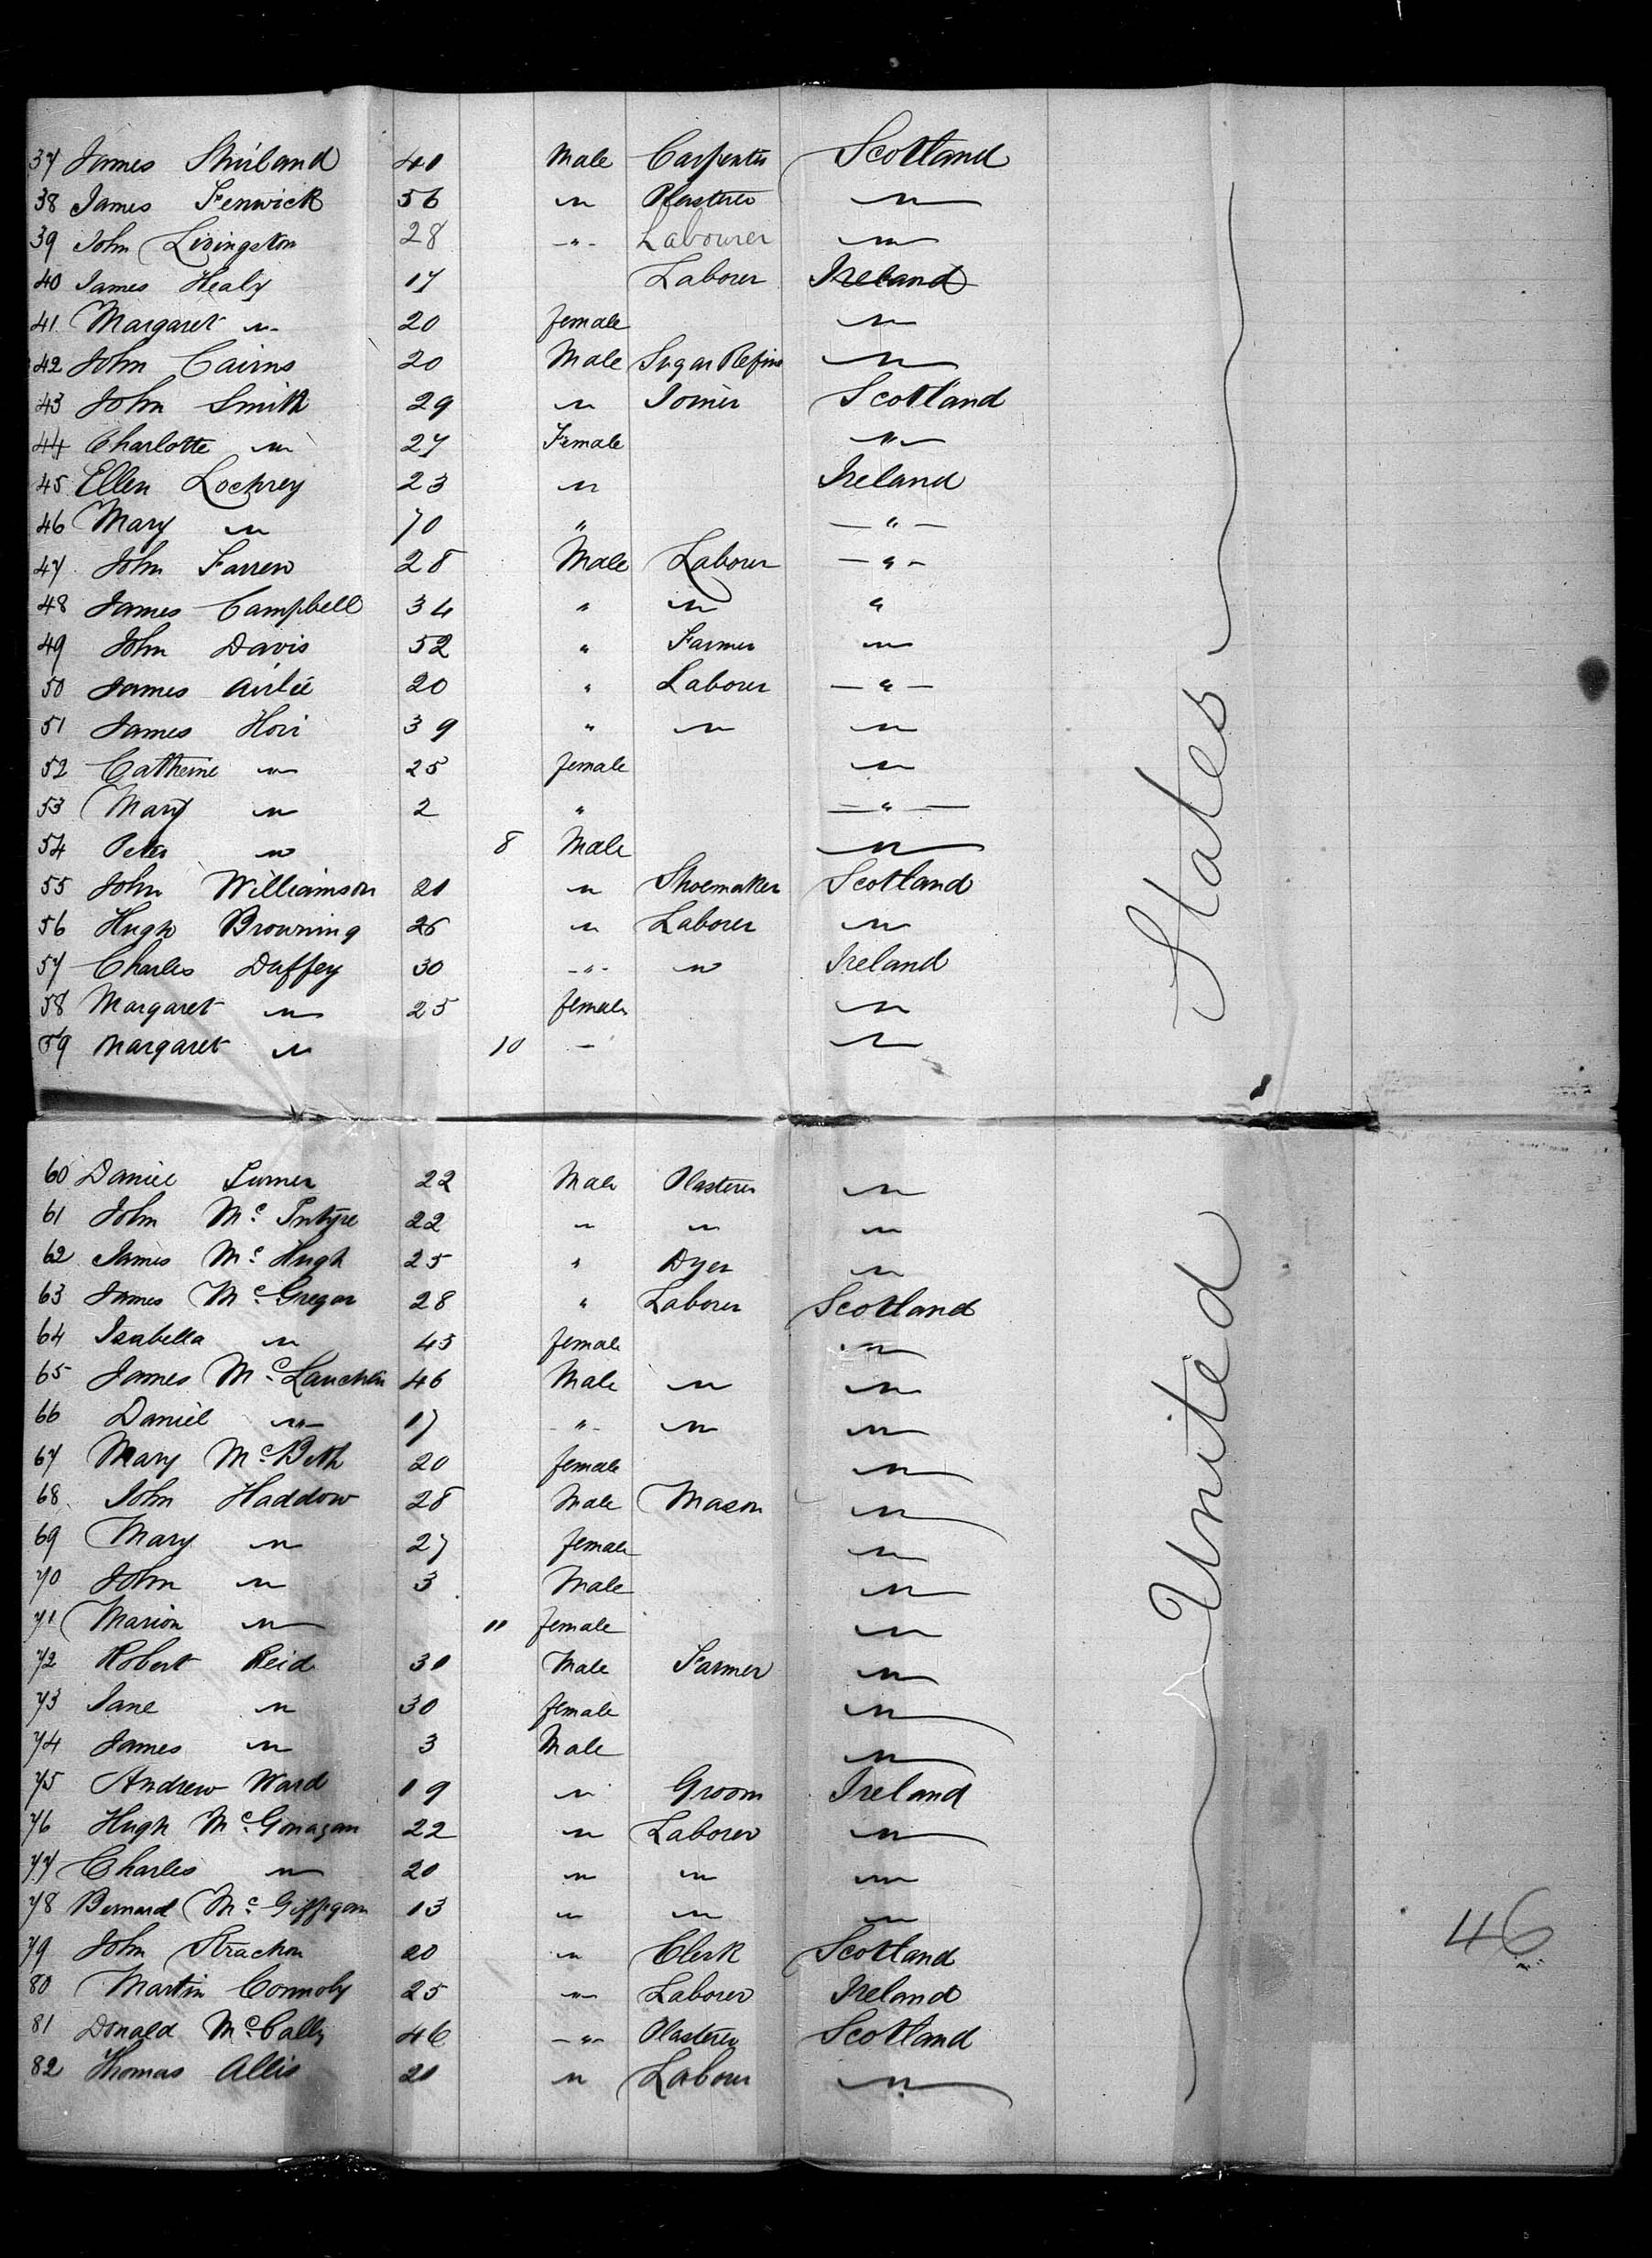 37 James Shirland 40 Male Carpenter Scotland
38 James Fenwick 56 " Plasterer "
39 John Livingston 28 " Labourer "
40 James Healy 17 Laborer Ireland
41 Margaret " 20 female "
42 John Cairns 20 Male Sugar Refiner "
43 John Smith 29 " Joiner Scotland
44 Charlotte " 27 Female "
45 Ellen Lochrey 23 " Ireland
46 Mary " 70 " "
47 John Farren 28 Male Laborer "
48 James Campbell 34 " " "
49 John Davis 52 " Farmer "
50 James Airlie 20 " Laborer "
51 James 39 " " "
52 Catherine " 25 female "
53 Mary " 2 " "
54 Peter " 8 Male "
55 John Williamson 21 " Shoemaker Scotland
56 Hugh Browning 26 " Laborer "
57 Charles Duffey 30 " " Ireland
58 Margaret " 25 female "
59 Margaret " 10 " "
60 Daniel Turner 22 Male Plasterer "
61 John Mc Intyre 22 " " "
62 James Mc Hugh 25 " Dyer "
63 James Mc Gregor 28 " Laborer Scotland
64 Isabella " 43 female "
65 James Mc Lauchlin 46 Male " "
66 Daniel " 17 " " "
67 Mary Mc Beth 20 female "
68 John Haddow 28 Male Mason "
69 Mary " 27 female "
70 John " 3 Male "
71 Marion " 11 female "
72 Robert Reid 30 Male Farmer "
73 Jane " 30 female "
74 James " 3 Male "
75 Andrew Ward 19 " Groom Ireland
76 Hugh Mc Gonagan 22 " Laborer "
77 Charles " 20 " " "
78 Bernard Mc 13 " " "
79 John Strachan 20 " Clerk Scotland
80 Martin Connoly 25 " Laborer Ireland
81 Donald Mc Cally 46 " Plasterer Scotland
82 Thomas Allis 20 " Laborer "
United States
46